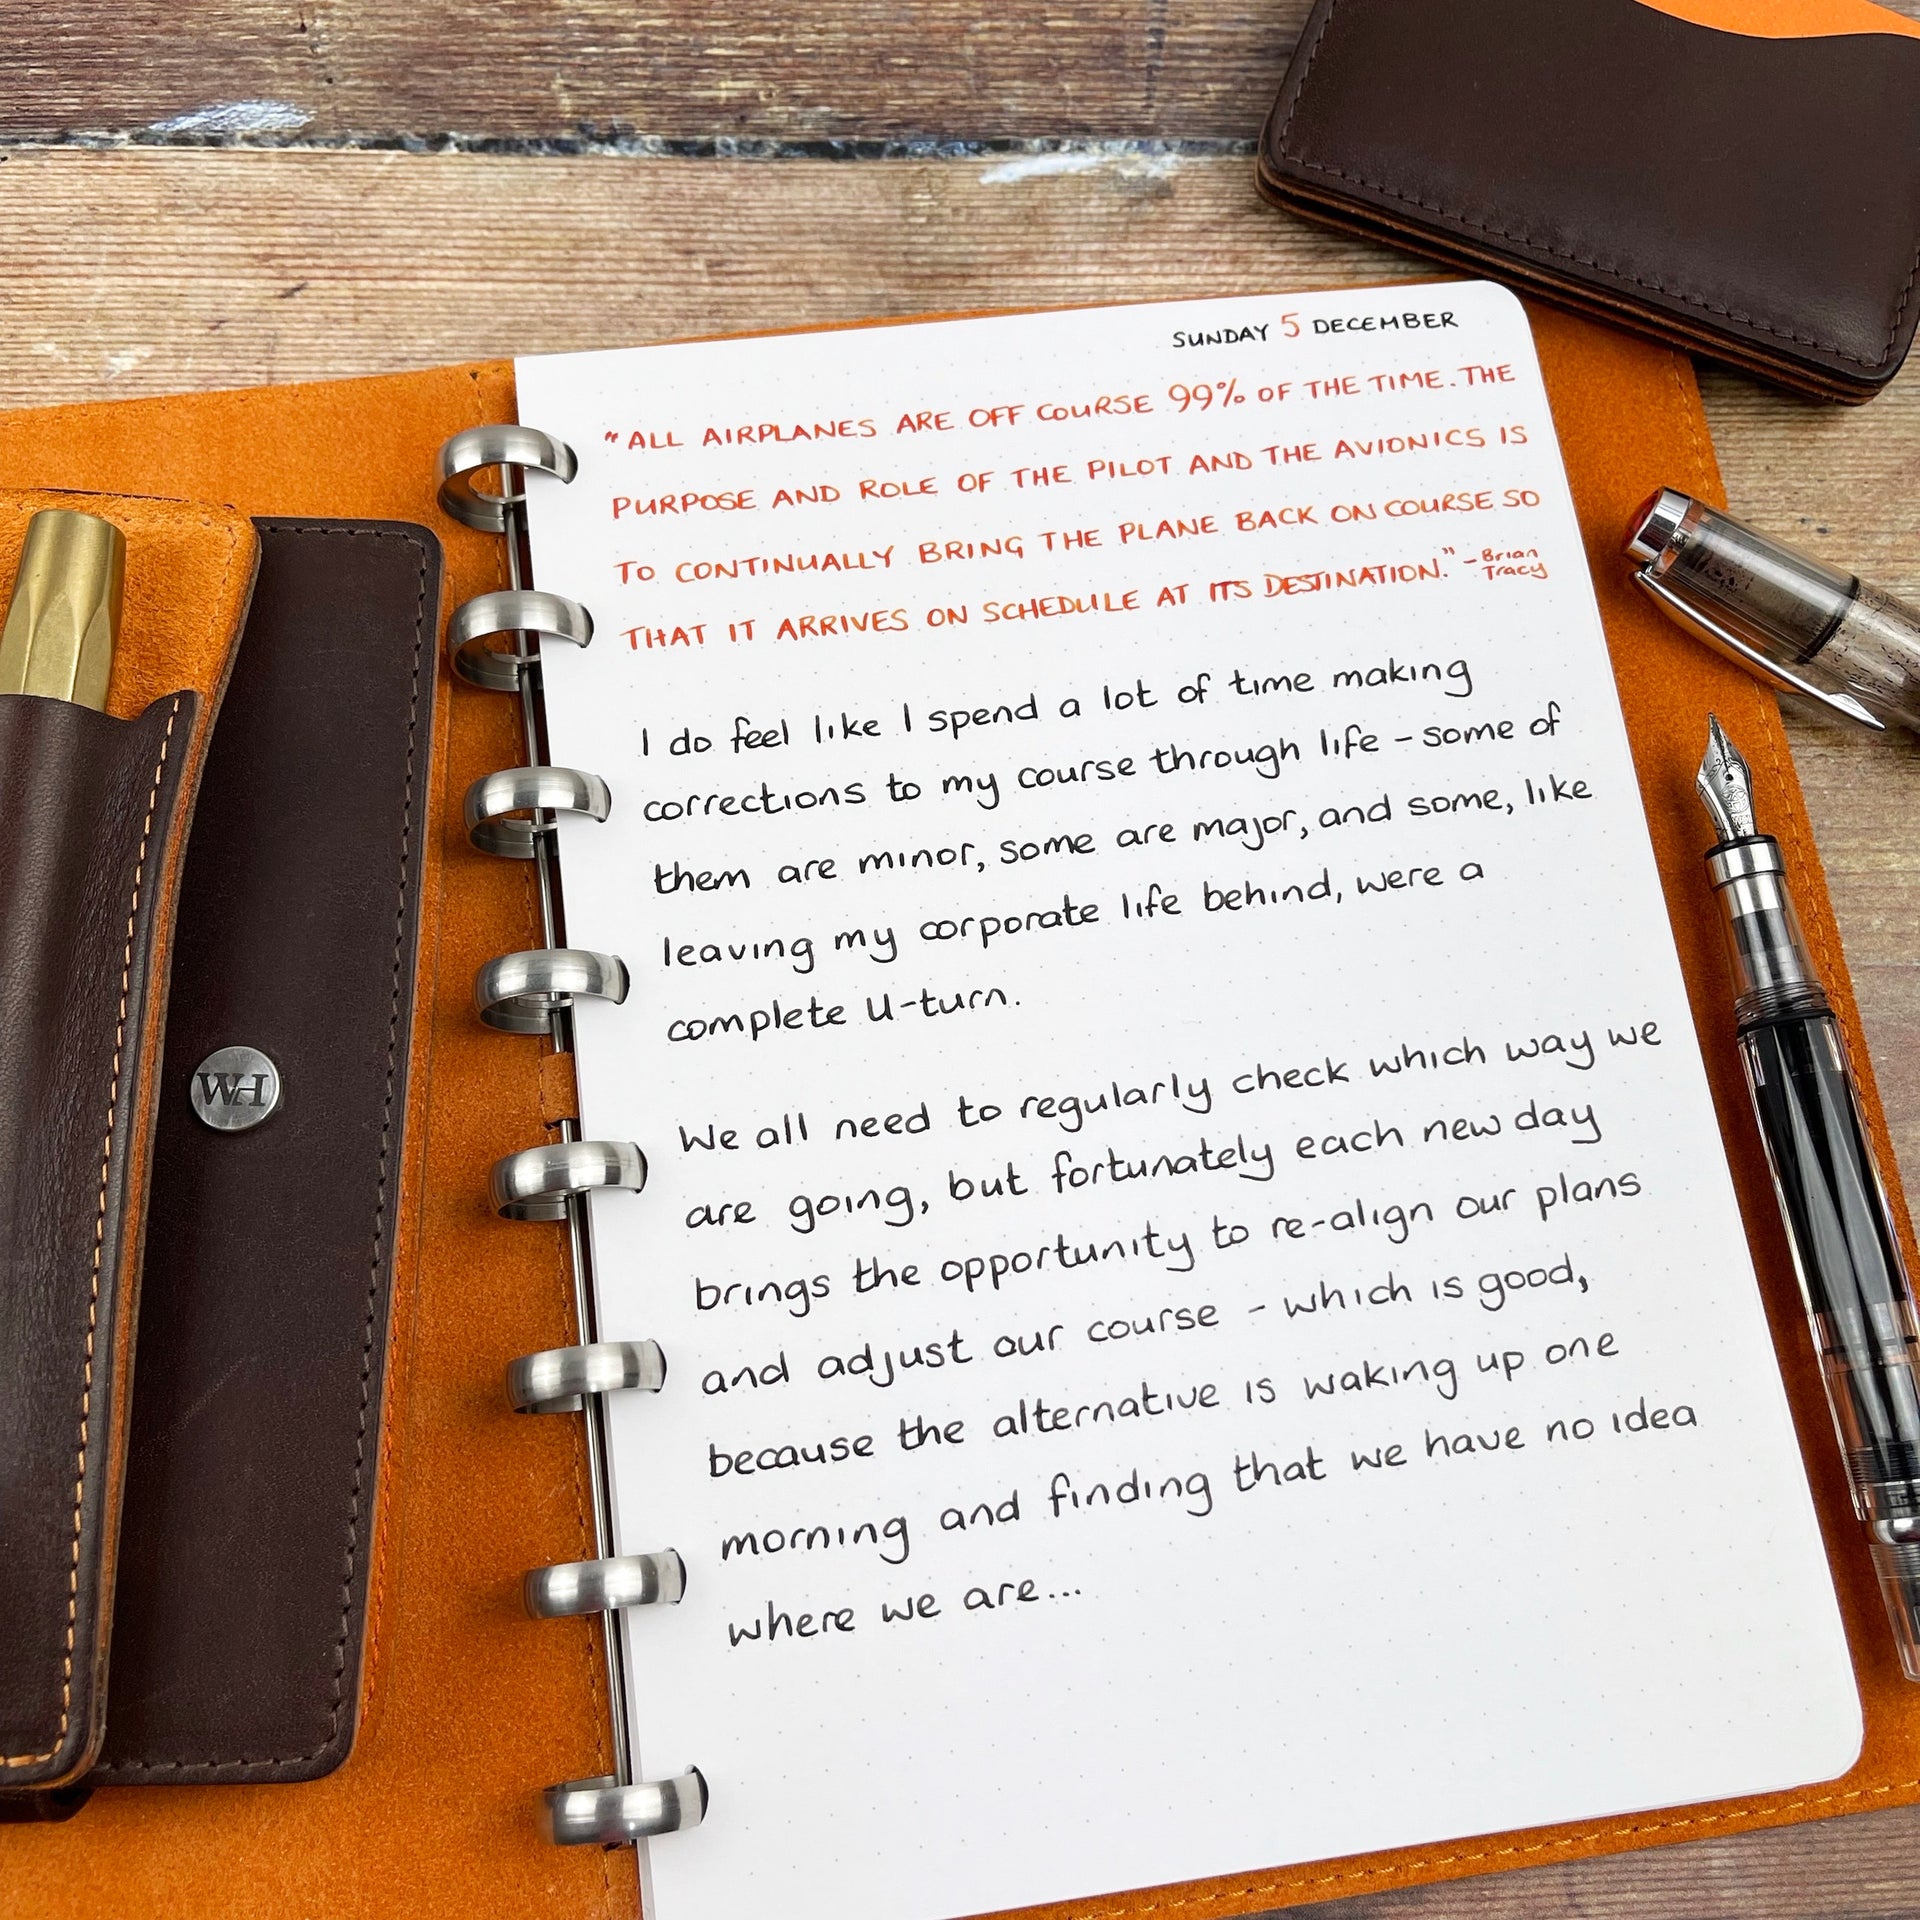 SUNDAY 5 DECEMBER
"ALL AIRPLANES ARE OFF COURSE 99% OF THE TIME. THE
PURPOSE AND ROLE OF THE PILOT AND THE AVIONICS IS
TO CONTINUALLY BRING THE PLANE BACK ON COURSE SO
THAT IT ARRIVES ON SCHEDULE AT ITS DESTINATION." - Brian
Tracy
I do feel like I spend a lot of time making
corrections to my course through life - some of
them are minor, some are major, and some, like
leaving my corporate life behind, were a
complete U-turn.
We all need to regularly check which way we
are going, but fortunately each new day
brings the opportunity to re-align our plans
and adjust our course - which is good,
because the alternative is waking up one
morning and finding that we have no idea
where we are...
WH